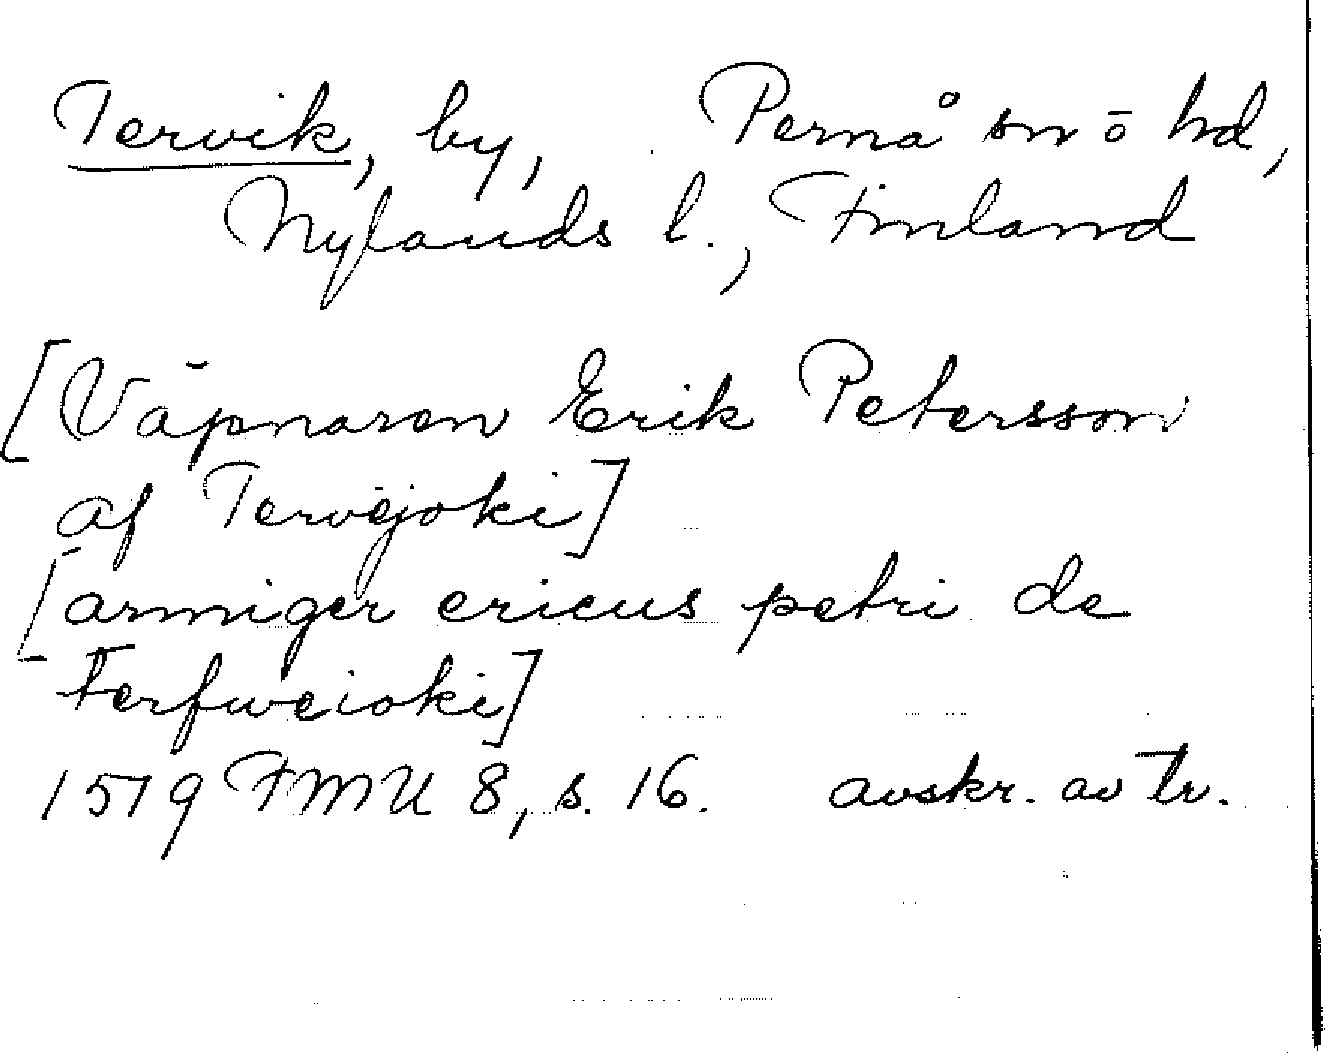 Tervik, by, Pernå sn o hd,
Nylands l., Finland
[Väpnaren Erik Petersson
af Tervejoki]
[armiger ericus petri de
Terfweioki]
1519 FMU 8, s. 16. avskr. av tr.